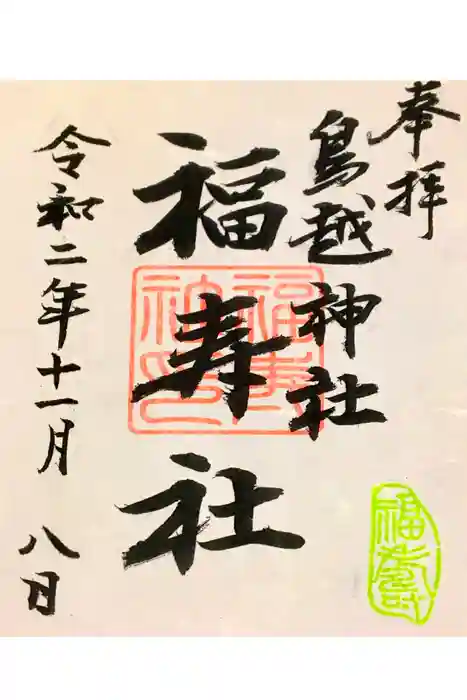 奉拝
鳥越神社
福寿社
令和二年十一月
八日
福寿